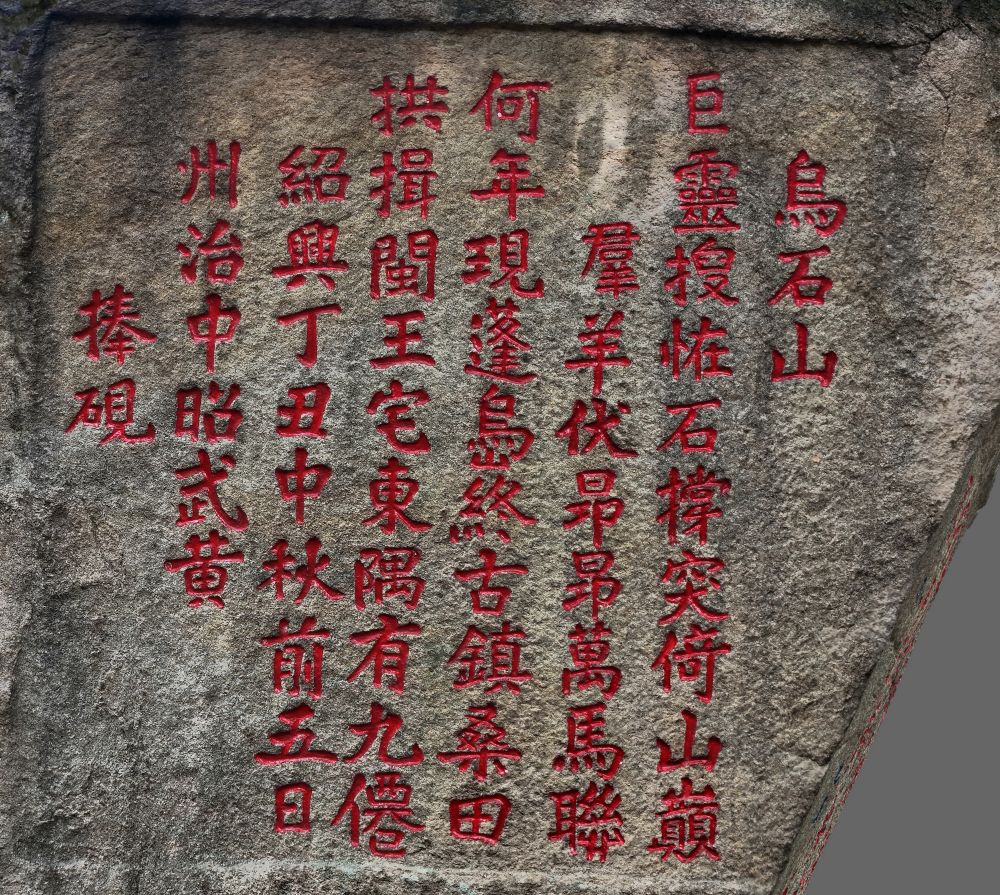 烏石山
巨靈搜恠石撐突倚山巔
羣羊伏昂昂萬馬聯
何年現蓬島終古鎮桑田
拱揖閩王宅東隅有九僊
紹興丁丑中秋前五日
州治中昭武黄
捧硯